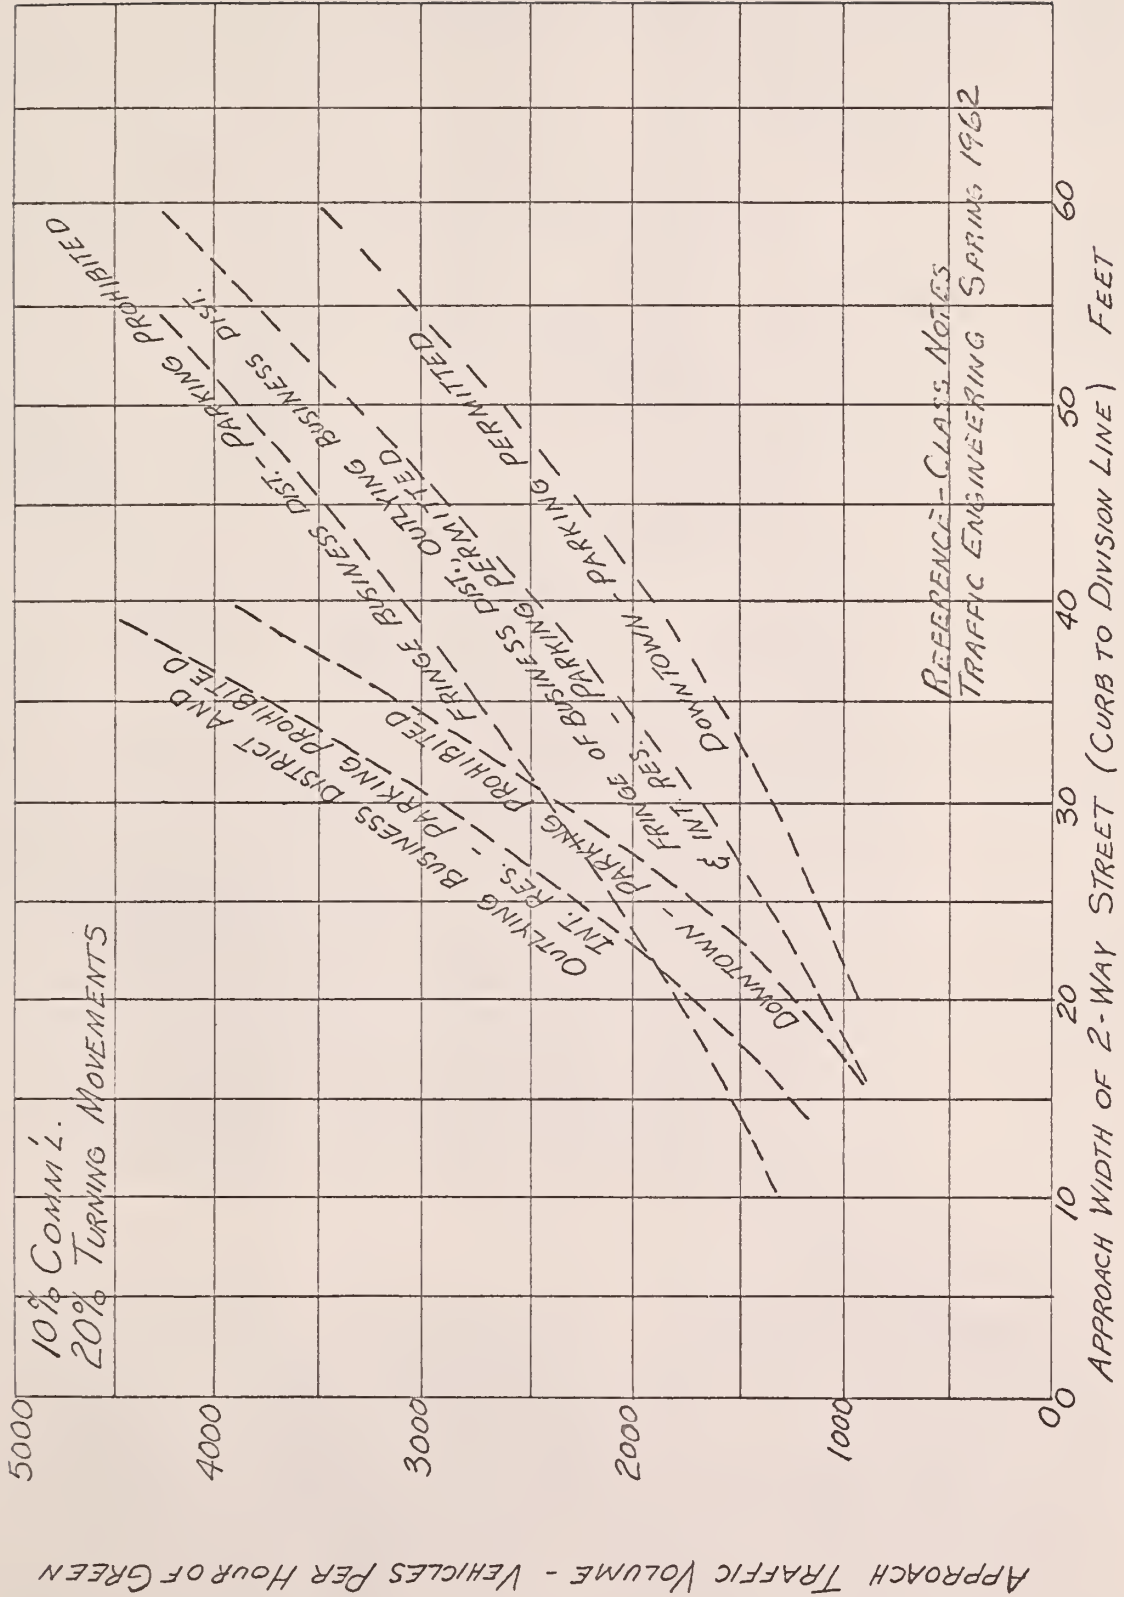 10% COMM'L.
20% TURNING MOVEMENTS
5000
4000
3000
2000
1000
0
APPROACH TRAFFIC VOLUME - VEHICLES PER HOUR OF GREEN
OUTLYING BUSINESS DISTRICT AND
INT. RES. - PARKING PROHIBITED
DOWNTOWN - PARKING PROHIBITED
FRINGE BUSINESS DIST. - PARKING PROHIBITED
FRINGE OF BUSINESS DIST., OUTLYING BUSINESS DIST.
& INT. RES. - PARKING PERMITTED
DOWNTOWN - PARKING PERMITTED
REFERENCE - CLASS NOTES
TRAFFIC ENGINEERING SPRING 1962
0
10
20
30
40
50
60
APPROACH WIDTH OF 2-WAY STREET (CURB TO DIVISION LINE) FEET